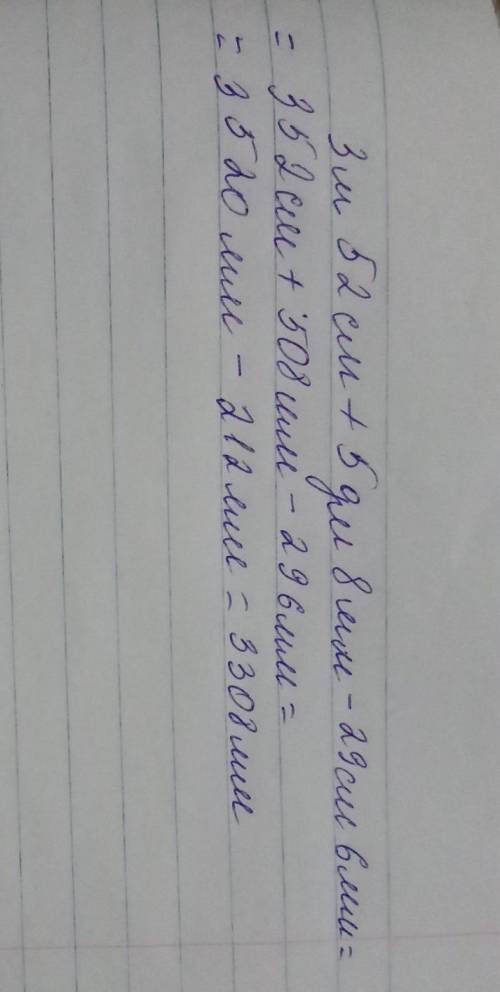 3м 52см + 5дм 8мм - 29см 6мм =
= 352см + 508мм - 296мм =
= 3520мм - 212мм = 3308мм